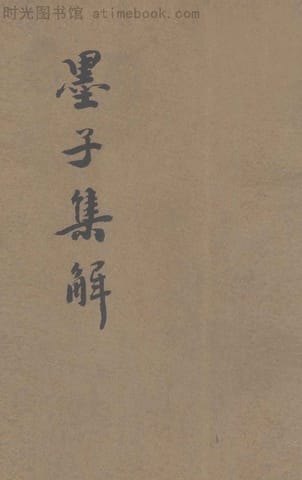 时光图书馆 atimebook.com
墨子集解